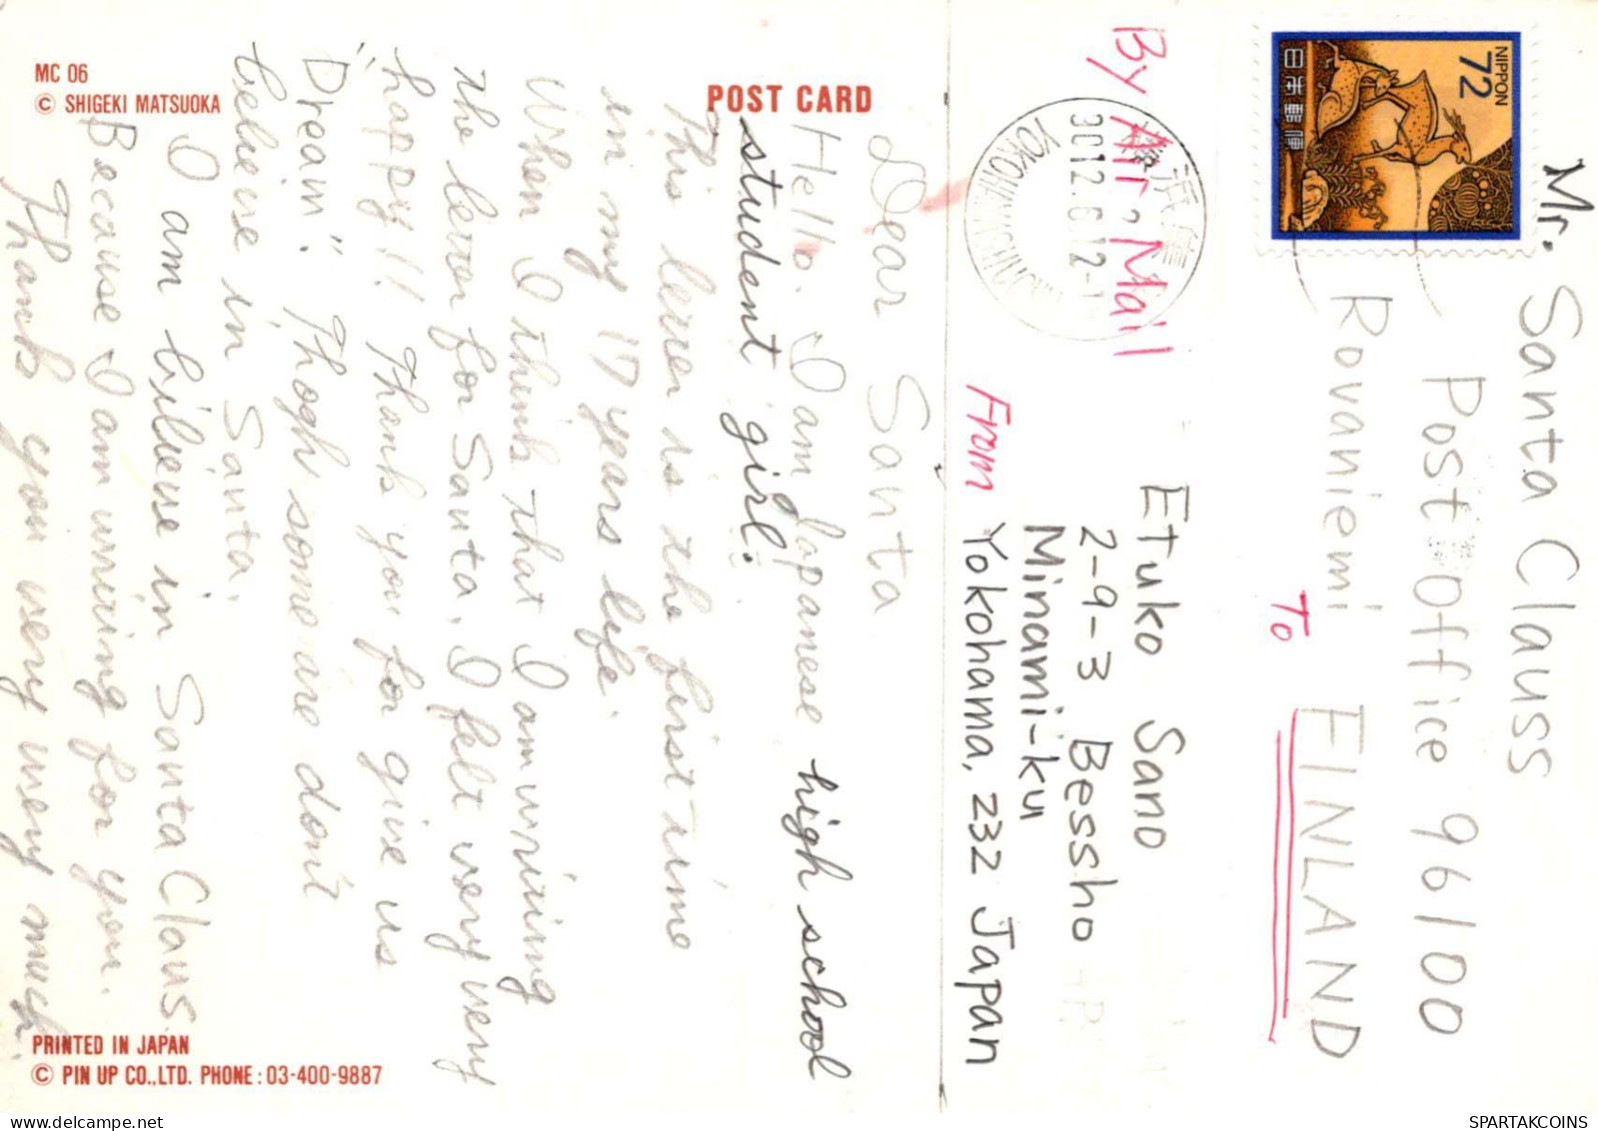 MC 06
© SHIGEKI MATSUOKA
POST CARD
Dear Santa
Hello. I am Japanese high school
student girl.
This letter is the first time
in my 17 years life.
When I think that I am writing
the letter for Santa, I felt very very
happy!! Thank you for give us
"Dream". Thogh some are don't
believe in Santa,
I am bilieve in Santa Claus.
Because I am writing for you.
Thank you very very much.
PRINTED IN JAPAN
© PIN UP CO.,LTD. PHONE : 03-400-9887
By Air Mail
90.12.6
12-
YOKOHAMA
NIPPON
72
日本郵便
Mr. Santa Clauss
Post Office 96100
Rovaniemi
To FINLAND
From
Etuko Sano
2-9-3 Bessho
Minami-ku
Yokohama, 232 Japan
SPARTAKCOINS